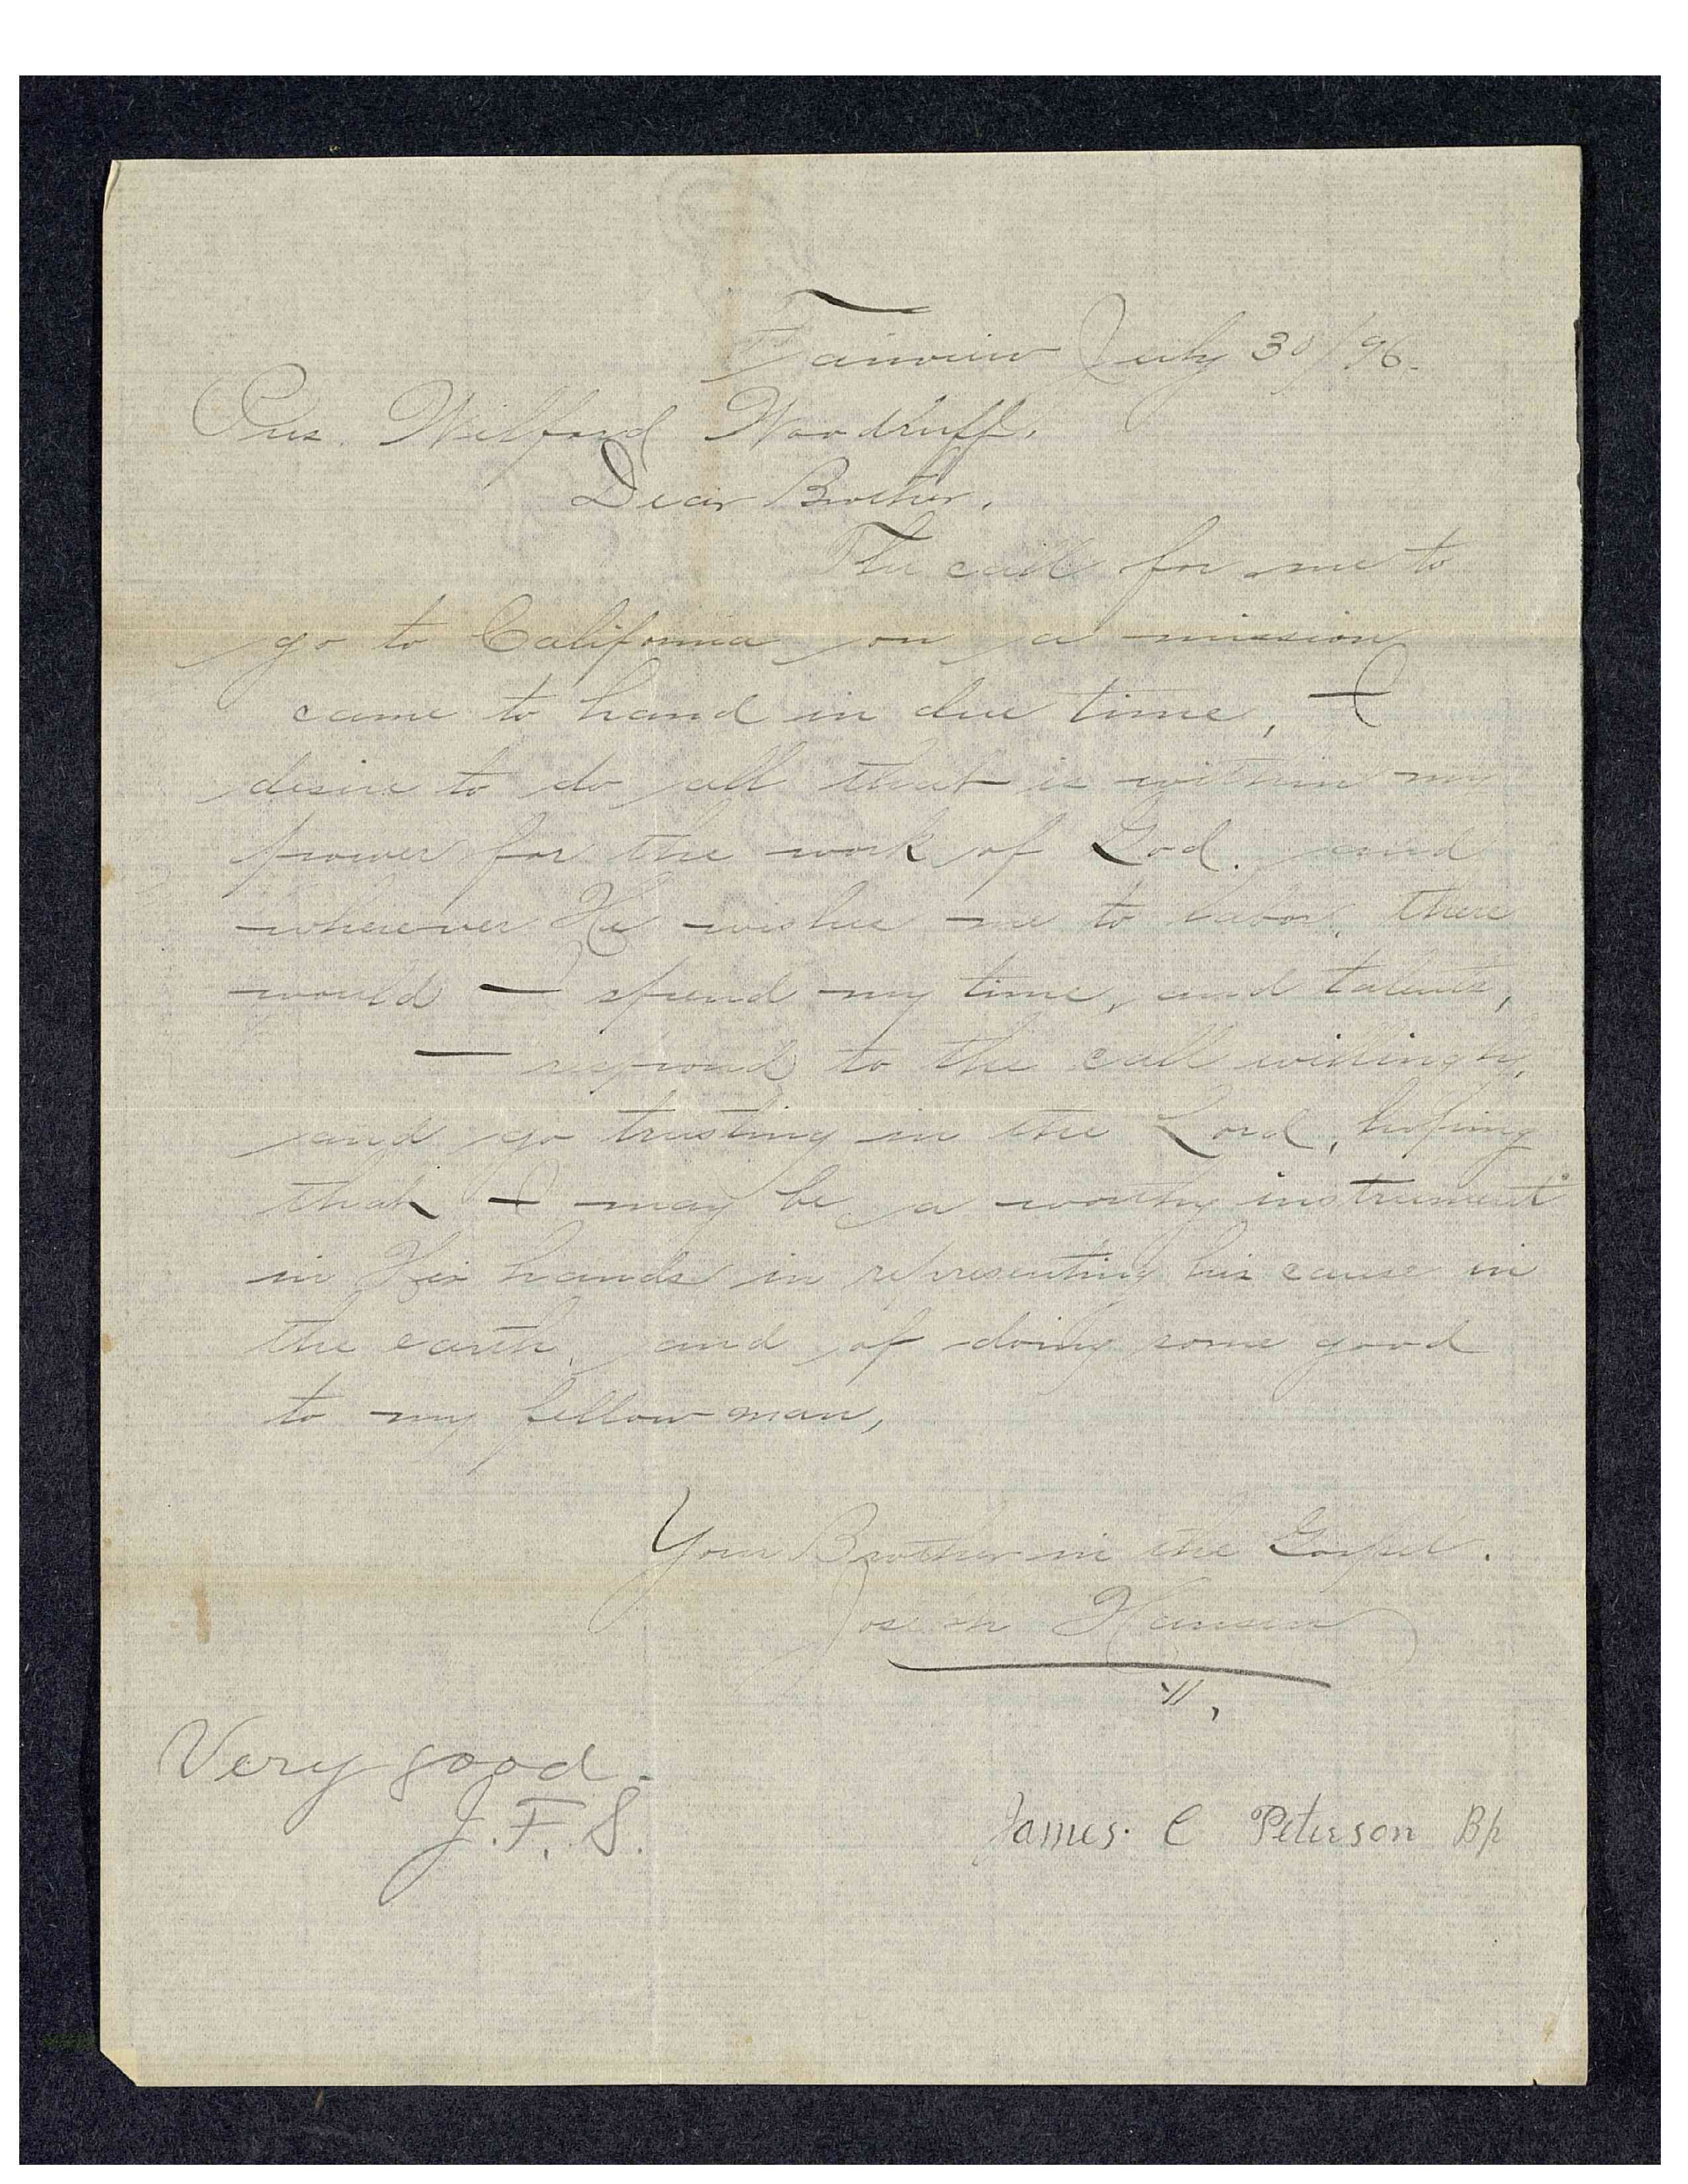 Fairview July 30/96.
Pres. Wilford Woodruff.
Dear Brother.
The call for me to
go to California on a mission
came to hand in due time, I
desire to do all that is within my
power for the work of God. and
wherever He wishes me to labor, there
would I spend my time, and talents,
I respond to the call willingly,
and go trusting in the Lord, hoping
that I may be a worthy instrument
in His hands in representing his cause in
the earth, and of doing some good
to my fellow man,
Your Brother in the Gospel.
Joseph Hansen
Very good.
J. F. S.
James. C Peterson Bp